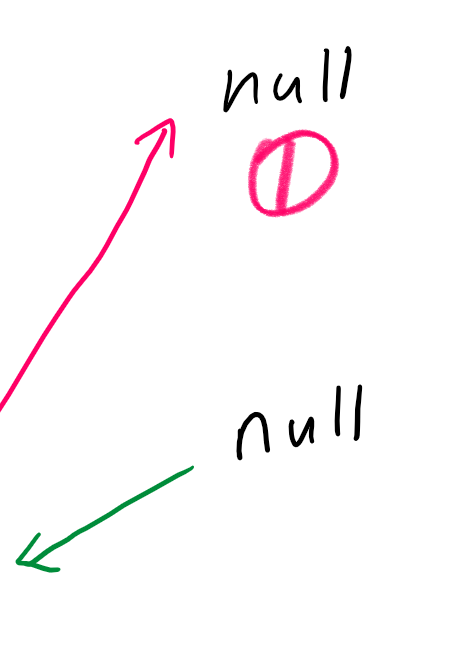 null
①
null